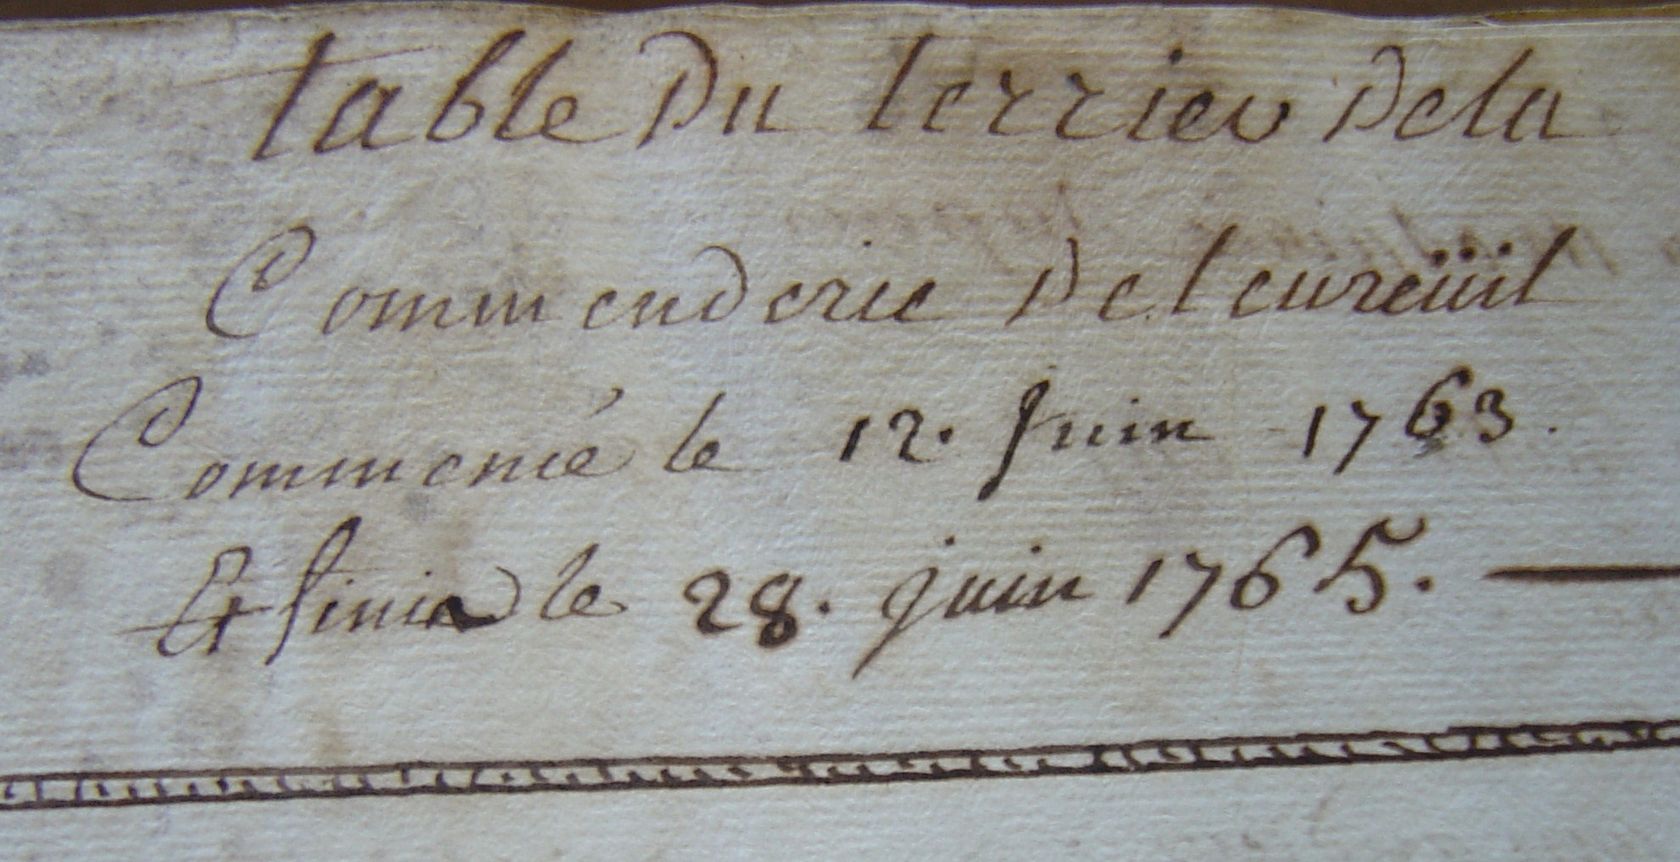 table Du terrier Dela
Commenderie De leureüil
Commencé le 12. Juin 1763.
Et finie le 28. juin 1765.